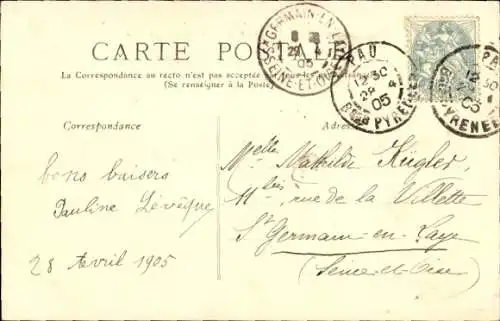 CARTE POSTALE
La Correspondance au recto n'est pas acceptée par tous les pays
(Se renseigner à la Poste)
ST GERMAIN-EN-LAYE
8
29 4
05
SEINE-ET-OISE
PAU
12 30
28 4
05
BSES PYRENEES
PAU
30
05
PYRENEES
Correspondance
Adresse
bons baisers
Pauline Lévêque
28 Avril 1905
Melle Mathilde Kügler
11 bis, rue de la Villette
St Germain-en-Laye
(Seine-et-Oise)